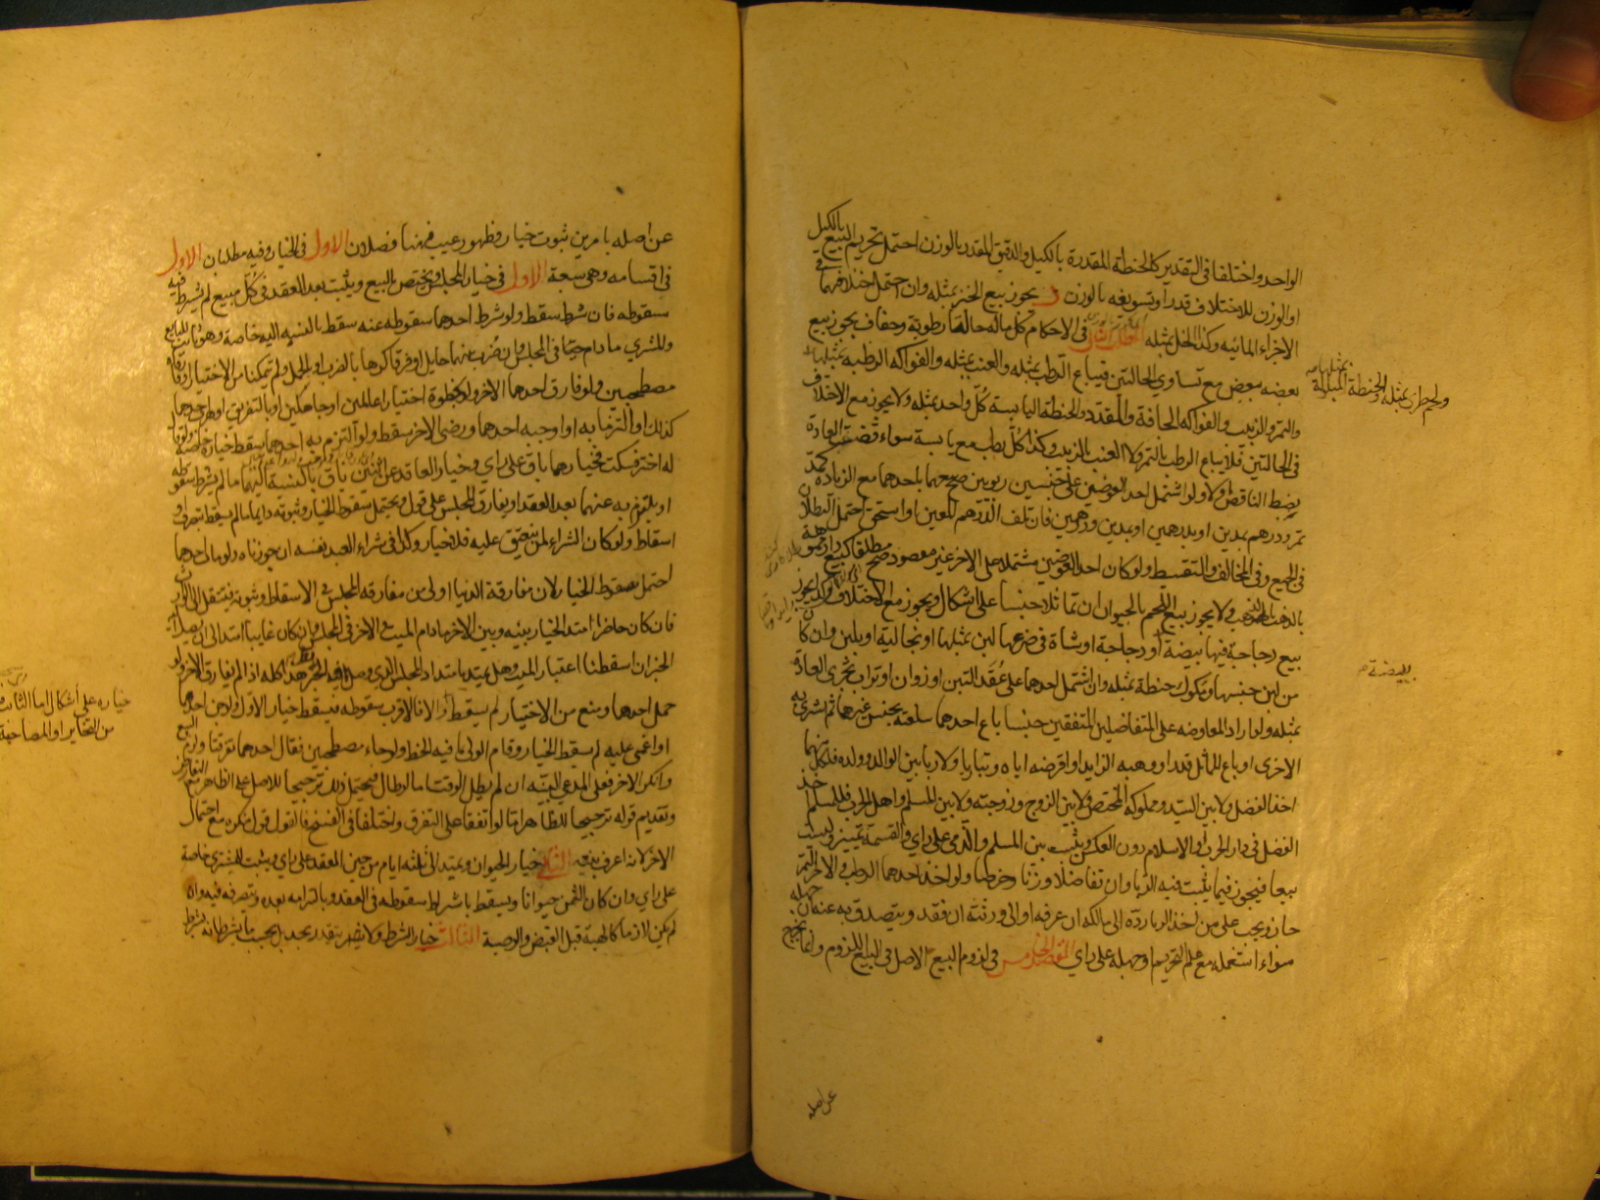 الواحد واختلفا فى التقدير كالحنطة المقدرة بالكيل والدقيق المقدر بالوزن احتمل تحريم البيع بالكيل
او الوزن للاختلاف قدرا وتسويغه بالوزن ويجوز بيع الخبز بمثله وان احتمل اختلافهما فى
الاجزاء المائيه وكذا الخل بمثله المطلب الثانى فى الاحكام كل ماله حالتا رطوبة وجفاف يجوز بيع
بعضه ببعض مع تساوى الحالتين فيباع الرطب بمثله والعنب بمثله والفواكه الرطبه بمثلها
ولحم طرى بمثله والحنطة المبلولة بمثلها
والتمر والزبيب والفواكه الجافة والمقدد والحنطة اليابسة كل واحد بمثله ولا يجوز مع الاختلاف
فى الحالتين فلا يباع الرطب بالتمر ولا العنب بالزبيب وكذا كل رطب مع يابسة سواء قضت العادة
بضبط الناقص او لا ولو اشتمل احد العوضين على جنسين ربويين صح بيعهما باحدهما مع الزيادة كمد
تمر ودرهم بمدين او بدرهمين او بمدين ودرهمين فان تلف الدرهم المعين او استحق احتمل البطلان
فى الجميع وفى المخالف والتقسيط ولو كان احد العوضين مشتملا على الاخر غير مقصود صح مطلقا كبيع دار مموهة
بالذهب بالذهب ولا يجوز بيع اللحم بالحيوان ان تماثلا جنسا على اشكال ويجوز مع الاختلاف ويجوز
بيع دجاجة فيها بيضة او دجاجة او شاة فى ضرعها لبن بمثلها او بخالية او بلبن وان كان
بيضة
من لبن جنسها ومكوك حنطة بمثله وان اشتمل احدهما على عقد التبن او زوان او تراب تجرى العادة
بمثله ولو اراد المعاوضه على المتفاضلين المتفقين جنسا باع احدهما سلعته بجنس غيرها ثم اشترى به
الاخرى او باع المماثل قدرا ووهبه الزايد او اقرضه اياه وتباريا ولا ربا بين الوالد وولده فلكل منهما
اخذ الفضل ولا بين السيد ومملوكه المختص ولا بين الزوج وزوجته ولا بين المسلم واهل الحرب فللمسلم اخذ
الفضل فى دار الحرب او الاسلام دون العكس ويثبت بين المسلم والذمى على راى والقسمة تمييز وليست
بيعا فيجوز فيما يثبت فيه الربا وان تفاضلا وزنا وخرصا ولو اخذ احدهما الرطب والاخر التمر
جاز ويجب على من اخذ الربا رده الى مالكه ان عرفه او الى ورثته ان فقد ويتصدق به عنه ان جهله
سواء استعمله مع علم التحريم او جهله على راى المقصد الخامس فى لزوم البيع الاصل فى البيع اللزوم وانما يخرج
عن اصله
عن اصله بامرين ثبوت خيار وظهور عيب فهنا فصلان الاول فى الخيار وفيه مطلبان الاول
فى اقسامه وهى سبعة الاول فى خيار المجلس ويختص بالبيع ويثبت بعد العقد فى كل مبيع لم يشترط فيه
سقوطه فان شرط سقط ولو شرط احدهما سقوطه عنه سقط بالنسبه اليه خاصة وهو ثابت للبايع
والمشترى ما داما حيا فى المجلس وان ضرب بينهما حايل او فرقا كرها بالضرب او الحمل ولم يتمكنا من الاختيار او فارقاه
مصطحبين ولو فارق احدهما الاخر ولو بخطوة اختيارا عالمين او جاهلين او بالتفريق او هرب احدهما
كذلك او التزما به او اوجبه احدهما ورضى الاخر سقط ولو التزم به احدهما سقط خياره خاصة ولو قال
له اختر فسكت فخيارهما باق على راى وخيار العاقد عن اثنين باق بالنسبة اليهما ما لم يشترط سقوطه
او يلتزم به عنهما بعد العقد او يفارق المجلس على قول ويحتمل سقوط الخيار وثبوته دايما ما لم يسقط بتصرف او
اسقاط ولو كان الشراء لمن ينعتق عليه فلا خيار وكذا فى شراء العبد نفسه ان جوزناه ولو مات احدهما
احتمل سقوط الخيار لان مفارقة الدنيا اولى من مفارقه المجلس فى الاسقاط وثبوته فينتقل الى الوارث
فان كان حاضرا امتد الخيار بينه وبين الاخر ما دام الميت والاخر فى المجلس وان كان غايبا امتد الى ان يصل اليه
الخبر ان اسقطنا اعتبار الميت وهل يمتد بامتداد المجلس الذى وصل فيه الخبر نظر هذا كله اذا لم يفارق الاخر ولو
حمل احدهما ومنع من الاختيار لم يسقط خياره على اشكال اما الثابت فان منع من التخاير او المصاحبة لم يسقط والا فالاقرب سقوطه فيسقط خيار الاول ولو جن احدهما
او اغمى عليه لم يسقط الخيار وقام الولى بما فيه الحظ ولو جاءا مصطحبين فقال احدهما تفرقنا ولزم البيع
وانكر الاخر فعلى المدعى البينه ان لم يطل الوقت اما لو طال فيحتمل ذلك ترجيحا للاصل على الظاهر مع التعارض
وتقديم قوله ترجيحا للظاهر اما لو اتفقا على التفرق واختلفا فى الفسخ فالقول قول منكره مع احتمال
الاخر لانه اعرف بنيته الثانى خيار الحيوان ويمتد الى ثلثه ايام من حين العقد على راى ويثبت للمشترى خاصة
على راى وان كان الثمن حيوانا ويسقط باشتراط سقوطه فى العقد وبالتزامه بعده وبتصرفه فيه وان
لم يكن لازما كالهبة قبل القبض والوصية الثالث خيار الشرط ولا يتقدر بحد بل بحسب ما يشترطانه بشرط